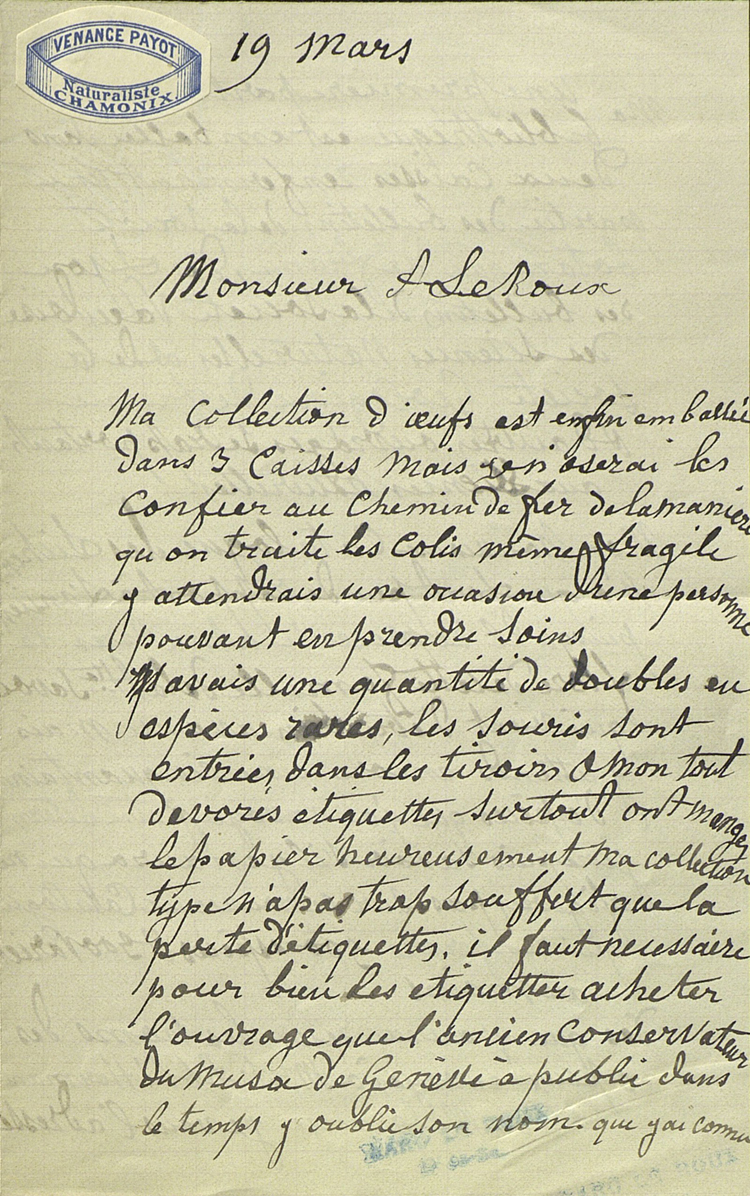 VENANCE PAYOT
Naturaliste
CHAMONIX
19 Mars
Monsieur A LeRoux
Ma Collection d'œufs est enfin emballée
dans 3 Caisses mais je n'oserai les
Confier au Chemin de fer de la manière
qu on traite les Colis même fragile
y attendrais une ocasion d'une personne
pouvant en prendre Soins
J'avais une quantité de doubles en
espèces rares, les souris sont
entrées dans les tiroirs & mon tout
devorés étiquettes surtout ont manger
le papier heureusement Ma collection
type n'a pas trop souffert que la
perte d'étiquettes. il faut necessaire
pour bien les etiquetter acheter
l'ouvrage que l'ancien Conservateur
du Musa de Genève a publié dans
le temps y oublie son nom. que y ai connu